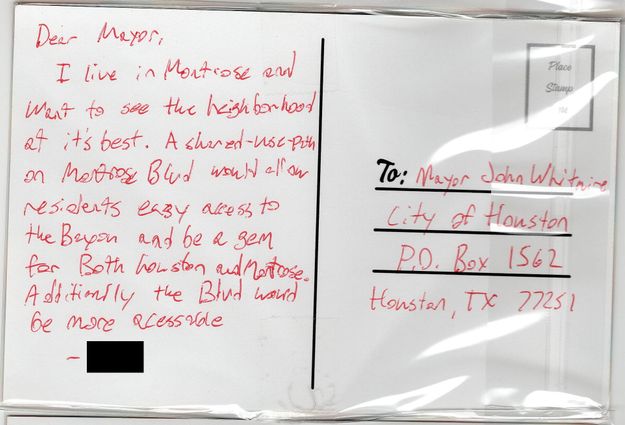 Dear Mayor,
I live in Montrose and
want to see the neighborhood
at it's best. A shared-use-path
on Montrose Blvd would allow
residents easy access to
the Bayou and be a gem
for Both houston and Montrose.
Additionally the Blvd would
be more acessable
-
Place
Stamp
To: Mayor John Whitmire
City of Houston
P.O. Box 1562
Houston, TX 77251